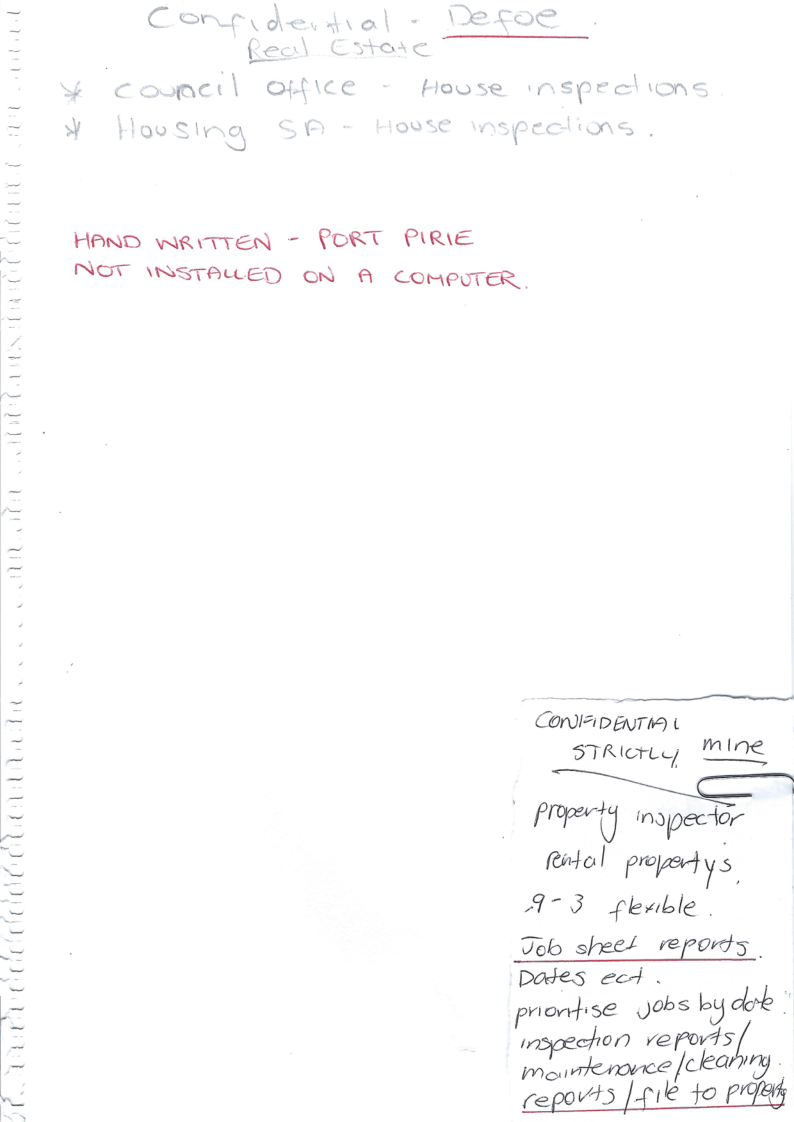 Confidential - Defoe.
Real Estate
* Council office - House inspections.
* Housing SA - House inspections.
HAND WRITTEN - PORT PIRIE
NOT INSTALLED ON A COMPUTER.
CONFIDENTIAL
STRICTLY mine
property inspector
rental propertys.
9-3 flexible.
Job sheet reports.
Dates ect.
prioritise jobs by date.
inspection reports/
maintenance/cleaning.
reports/file to property